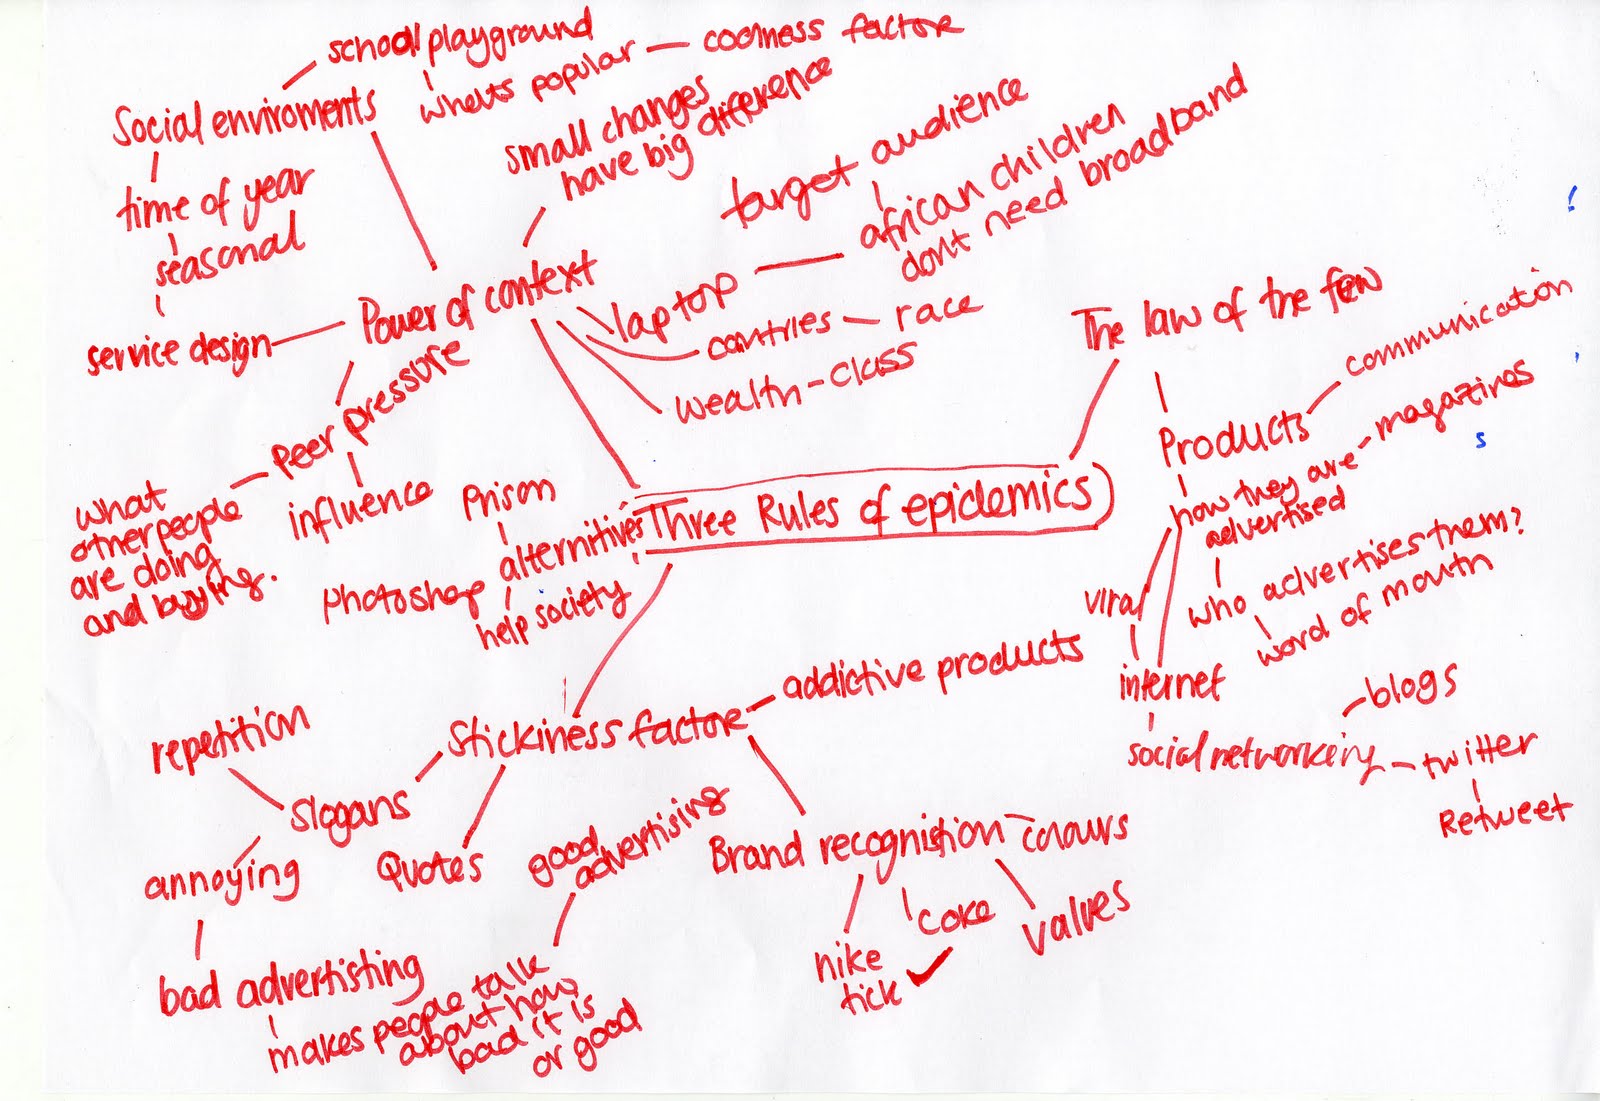 school playground
whats popular — coolness factore
Social enviroments
small changes
have big difference
time of year
seasonal
service design
Power of context
target audience
african children
dont need broadband
laptop
countries — race
wealth - class
Peer pressure
influence
what
other people
are doing
and buying.
Prison
alternitives
Photoshop
help society
Three Rules of epidemics
The law of the few
Products
communication
how they are
advertised
magazines
who advertises them?
word of mouth
viral
internet
social networking
blogs
twitter
Retweet
Stickiness factore
addictive products
repetition
Slogans
annoying
Quotes
bad advertisting
makes people talk
about how
bad it is
or good
good
advertising
Brand recognistion
colours
nike
tick ✓
coke
values
s